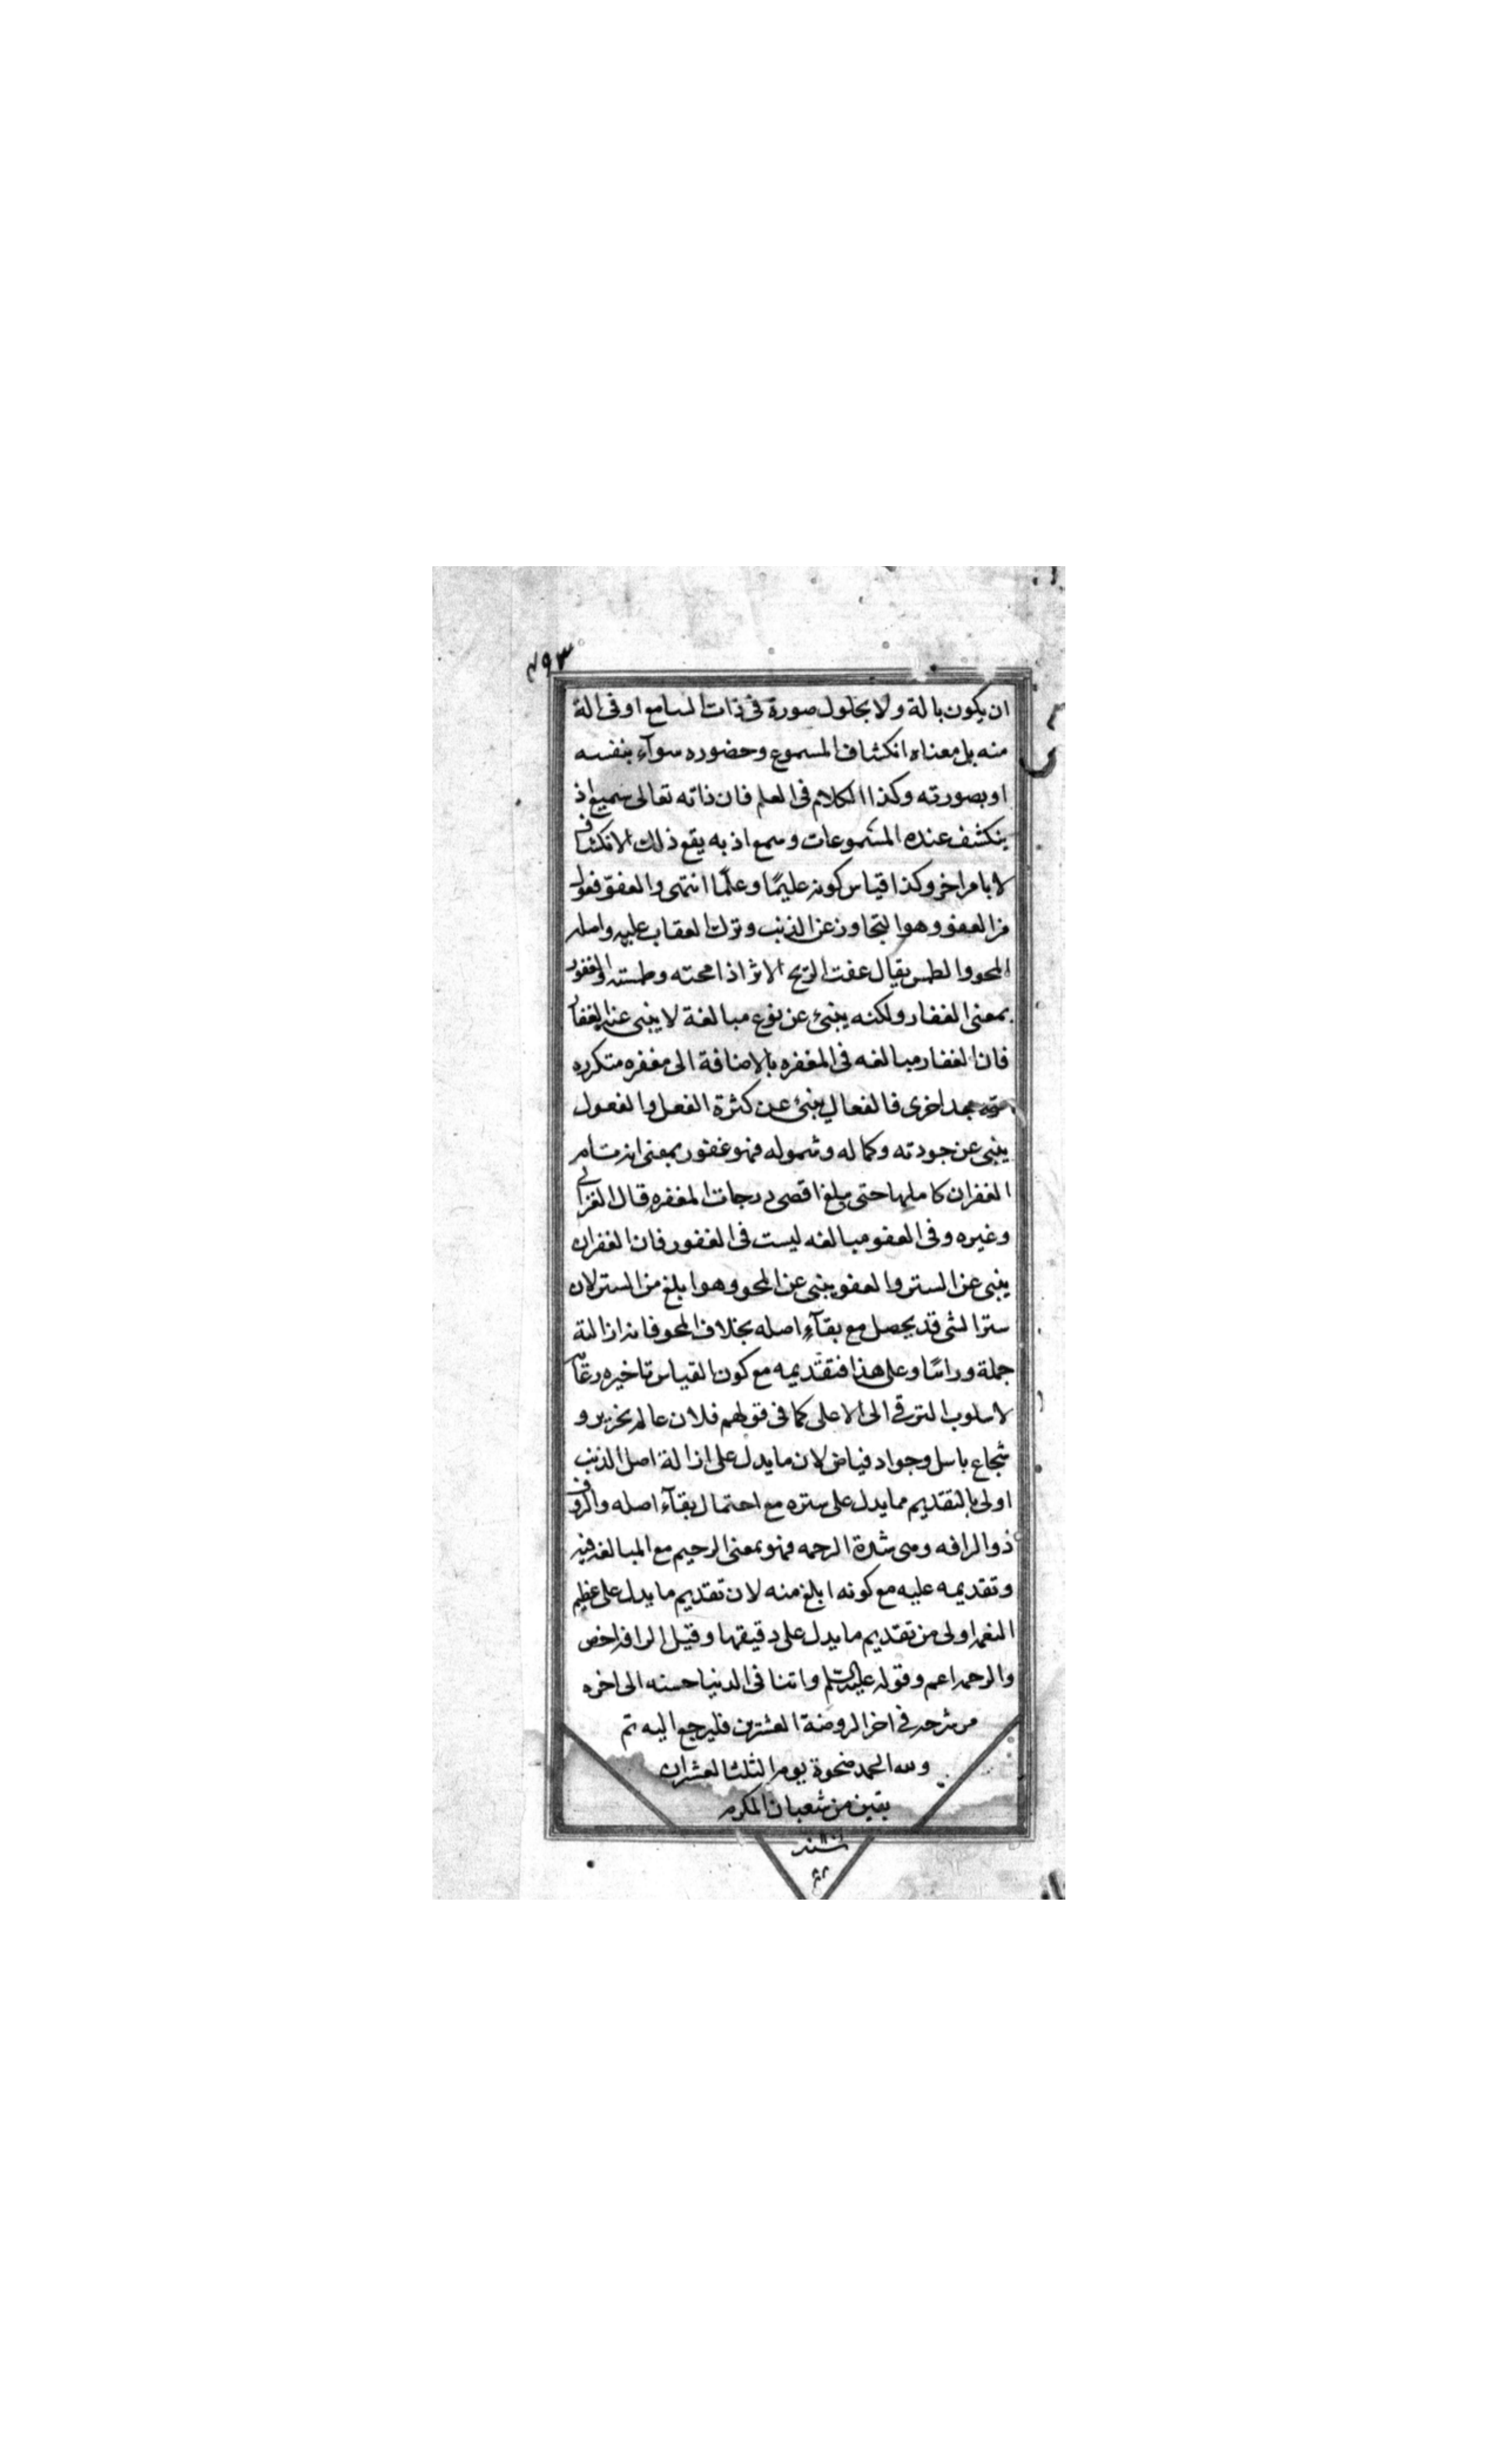 ٤٩٣
ان يكون بالة ولا بحلول صورة فى ذات السامع او فى الة
منه بل معناه انكشاف المسموع وحضوره سوآء بنفسه
او بصورته وكذا الكلام فى العلم فان ذاته تعالى سميع اذ
ينكشف عنده المسموعات وسمع اذ به يقع ذلك الانكشاف
لا بامر اخر وكذا قياس كونه عليمًا وعلمًا انتهى والعفوّ فعول
من العفو وهو التجاوز عن الذنب وترك العقاب عليه واصله
المحو والطمس يقال عفت الريح الاثر اذا محته وطمسته والغفور
بمعنى الغفار ولكنه ينبئ عن نوع مبالغة لا ينبى عنه الغفار
فان الغفار مبالغه فى المغفره بالاضافة الى مغفره متكرره
مرة بعد اخرى فالفعال ينبئ عن كثرة الفعل والفعول
ينبى عن جودته وكماله وشموله فهو غفور بمعنى انه تام
الغفران كاملها حتى يبلغ اقصى درجات المغفره قال الغزالى
وغيره وفى العفو مبالغه ليست فى الغفور فان الغفران
ينبى عن الستر والعفو ينبى عن المحو وهو ابلغ من الستر لان
ستر الشى قد يحصل مع بقآء اصله بخلاف المحو فانه ازالته
جملة وراسًا وعلى هذا فتقديمه مع كون القياس تاخيره رعاية
لاسلوب الترقى الى الاعلى كما فى قولهم فلان عالم نحرير و
شجاع باسل وجواد فياض لان ما يدل على ازالة اصل الذنب
اولى بالتقديم مما يدل على ستره مع احتمال بقآء اصله والروف
ذو الرافه وهى شدة الرحمه فهو بمعنى الرحيم مع المبالغه فيه
وتقديمه عليه مع كونه ابلغ منه لان تقديم ما يدل على عظيم
النعم اولى من تقديم ما يدل على دقيقها وقيل الرافه اخص
والرحمه اعم وقوله عليه السلم واتنا فى الدنيا حسنه الى اخره
مر شرحه فى اخر الروضة العشرين فليرجع اليه تم
ولله الحمد ضحوة يوم الثلثا لعشر ان
بقين من شعبان المكرم
سنه